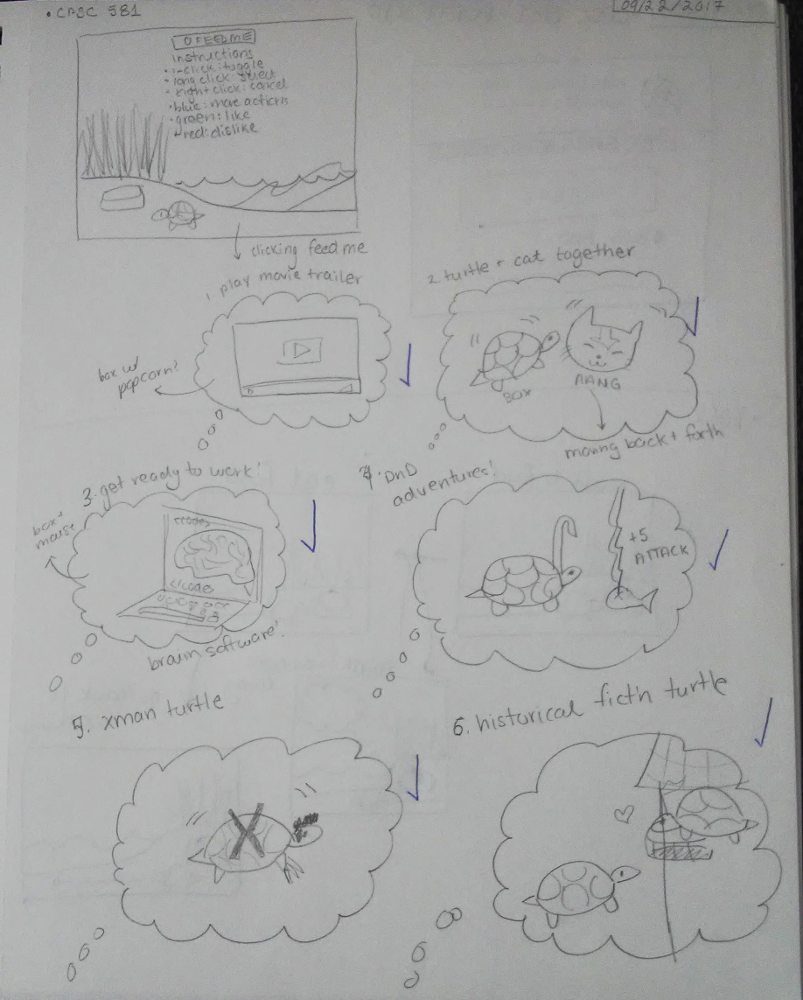 • CPSC 581
09/22/2017
FEED ME
instructions
• 1-click: toggle
• long click: select
• right click: cancel
• blue: more actions
• green: like
red: dislike
clicking feed me
1. play movie trailer
box w/
popcorn?
2 turtle + cat together
BOX
AANG
moving back + forth
3. get ready to work!
box +
mouse
<code>
</code>
braum software!
4. DnD
adventures!
+5
ATTACK
5. xman turtle
X
6. historical fict'n turtle